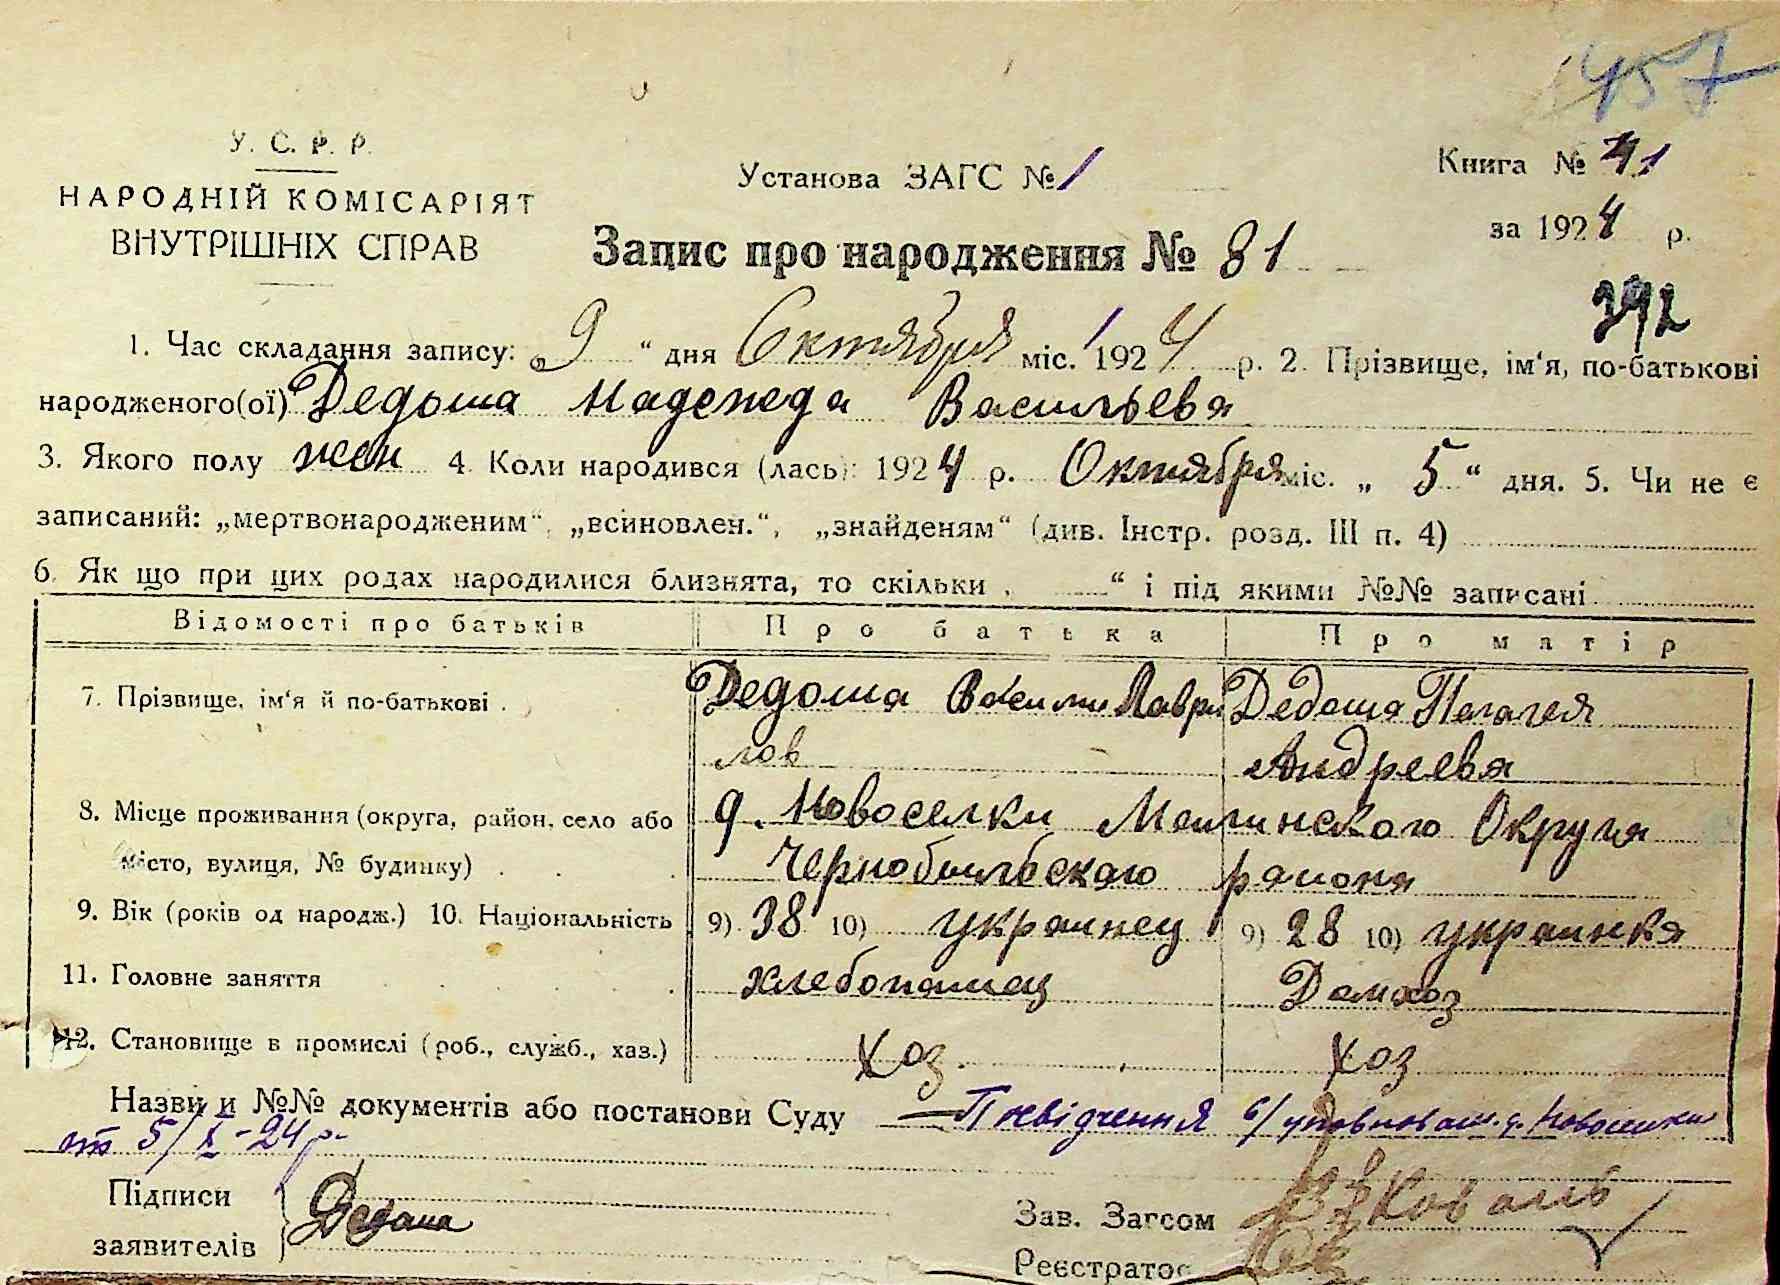 457
У. С. Р. Р.
НАРОДНІЙ КОМІСАРІЯТ
ВНУТРІШНІХ СПРАВ
Установа ЗАГС № 1
Книга №
за 1924 р.
Запис про народження № 81
392
1. Час складання запису: „9“ дня Октября міс. 1924 р. 2. Прізвище, ім‘я, по-батькові
народженого(ої) Дедоша Надежеда Васильевя
3. Якого полу жен 4. Коли народився (лась): 1924 р. Октября міс. „5“ дня. 5. Чи не є
записаний: „мертвонародженим“, „всиновлен.“, „знайденям“ (див. Інстр. розд. III п. 4)
6. Як що при цих родах народилися близнята, то скільки „ “ і під якими №№ записані
Відомості про батьків Про батька Про матір
7. Прізвище, ім‘я й по-батькові . Дедоша Васили Лаври Дедоша Пелагея
лов Андреевя
8. Місце проживання (округа, район, село або д. Новоселки Окруѓя
місто, вулиця, № будинку) . . Чернобыльскаго районя
9. Вік (років од народж.) 10. Національність 9) 38 10) украинец 9) 28 10) украинкя
11. Головне заняття хлебопашец Домхоз
12. Становище в промислі (роб., служб., хаз.) хоз. хоз
Назви и №№ документів або постанови Суду — Посвідчення с/уповноваж. д. Новоселки
от 5/X-24 р.
Підписи
заявителів Дедоша
Зав. Загсом Коваль
Реєстратор